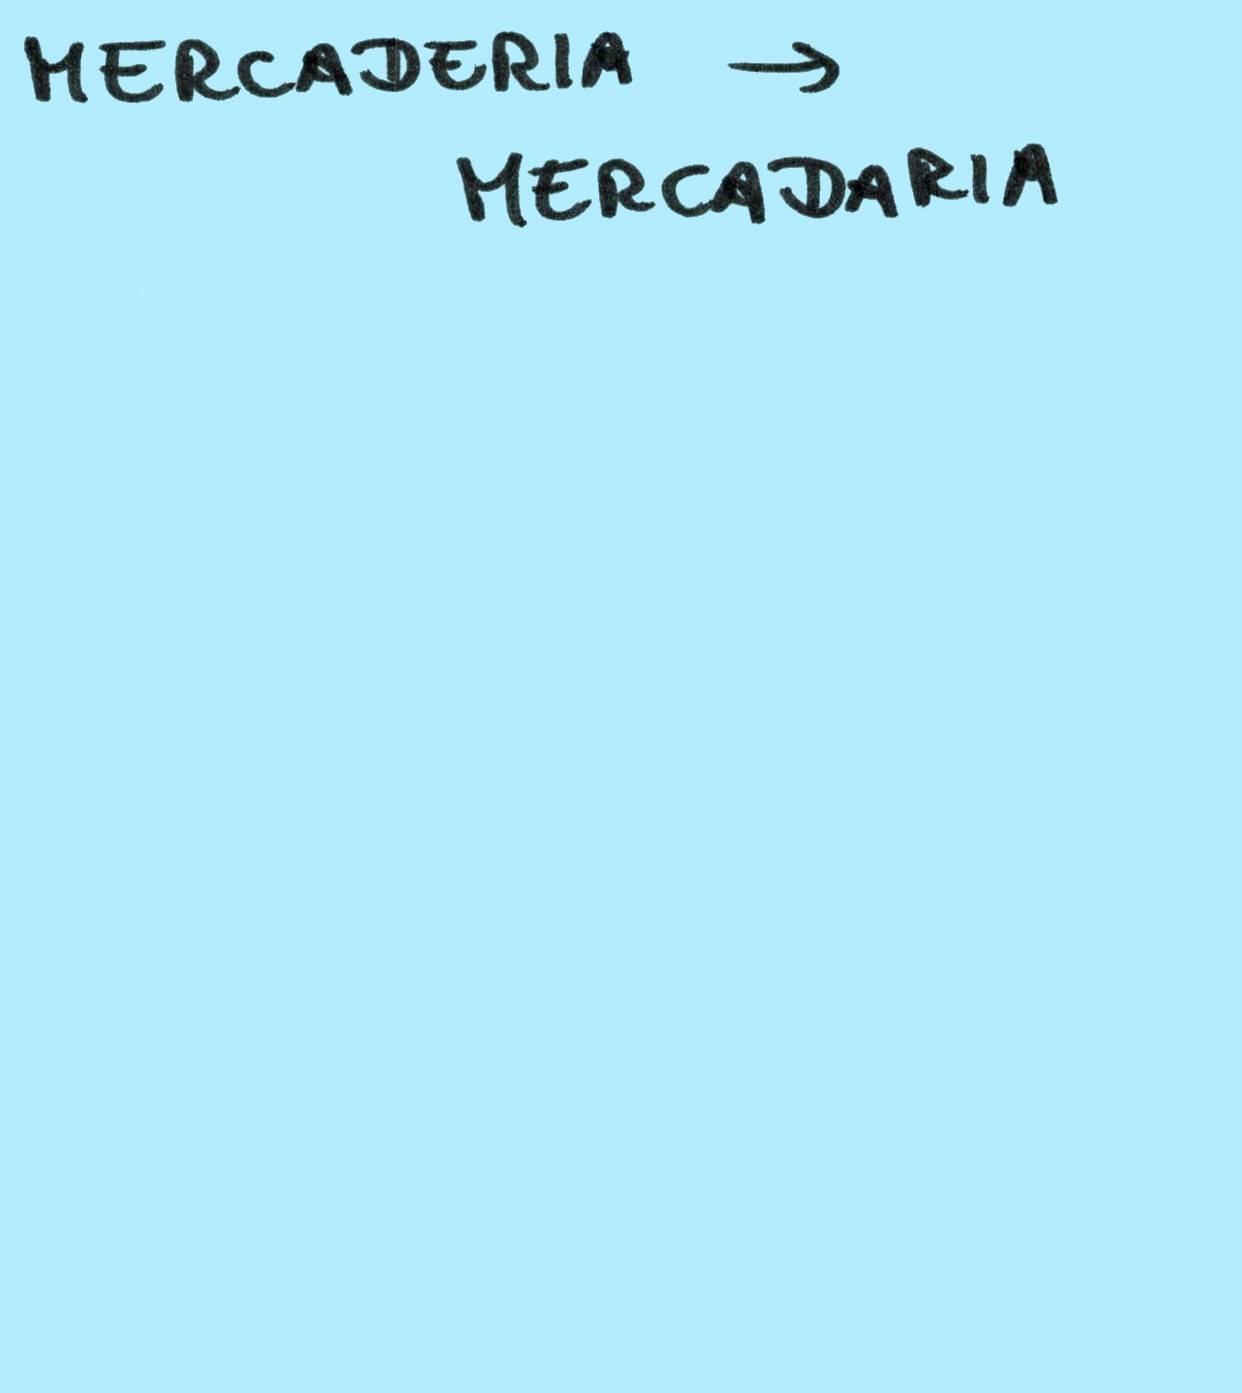 MERCADERIA →
MERCADARIA